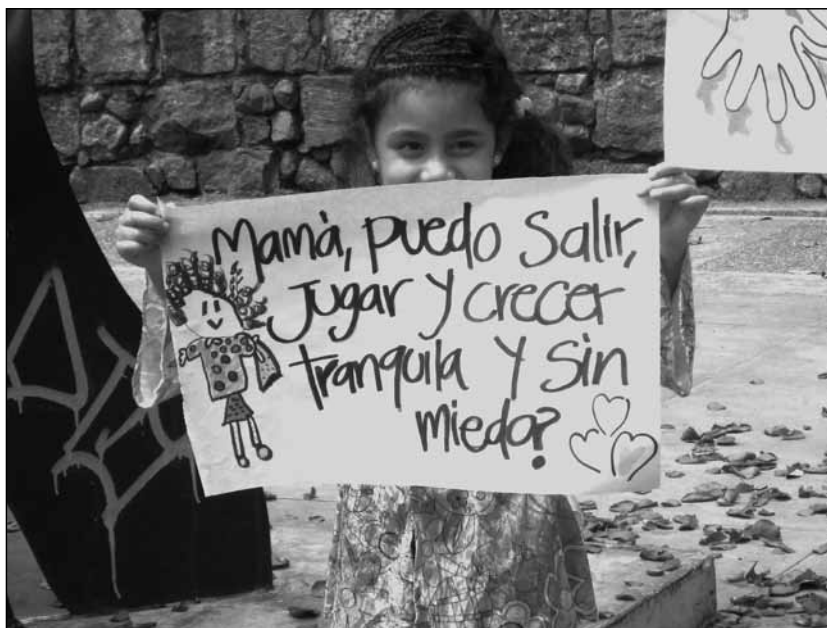 Mamà, puedo Salir,
Jugar y crecer
tranquila Y Sin
miedo?